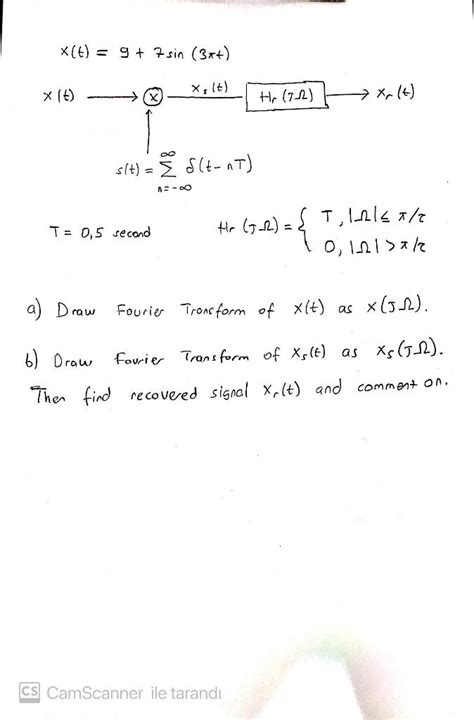 x(t) = 9 + 7 sin (3πt)
x(t) X xs(t) Hr(JΩ) xr(t)
s(t) = ∞ Σ n=-∞ δ(t-nT)
T = 0,5 second Hr(JΩ) = { T, |Ω| ≤ π/T
0, |Ω| > π/T
a) Draw Fourier Transform of x(t) as X(JΩ).
b) Draw Fourier Transform of Xs(t) as Xs(JΩ).
Then find recovered signal Xr(t) and comment on.
CS CamScanner ile tarandı